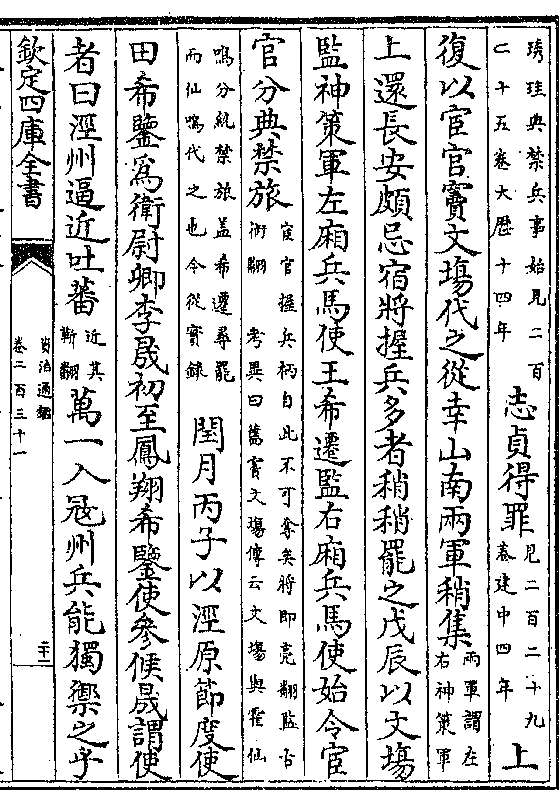 琇珪典禁兵事始見二百
二十五卷大厯十四年
志貞得罪
見二百二十九
卷建中四年
上
復以宦官竇文塲代之從幸山南兩軍稍集
兩軍謂左
右神策軍
上還長安頗忌宿將握兵多者稍稍罷之戊辰以文塲
監神策軍左廂兵馬使王希遷監右廂兵馬使始令宦
官分典禁旅
宦官握兵柄自此不可奪矣將即亮翻監古
銜翻 考異曰舊竇文塲傳云文塲與霍仙
鳴分統禁旅盖希遷尋罷
而仙鳴代之也今從實錄
閏月丙子以涇原節度使
田希鑒爲衛尉卿李晟初至鳳翔希鑒使參候晟謂使
者曰涇州逼近吐蕃
近其
靳翻
萬一入冦州兵能獨禦之乎
欽定四庫全書
資治通鑑
卷二百三十一